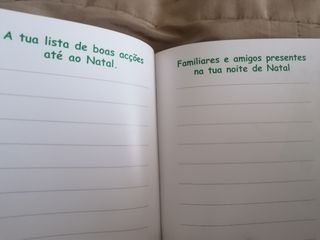 A tua lista de boas acções
até ao Natal.
Familiares e amigos presentes
na tua noite de Natal